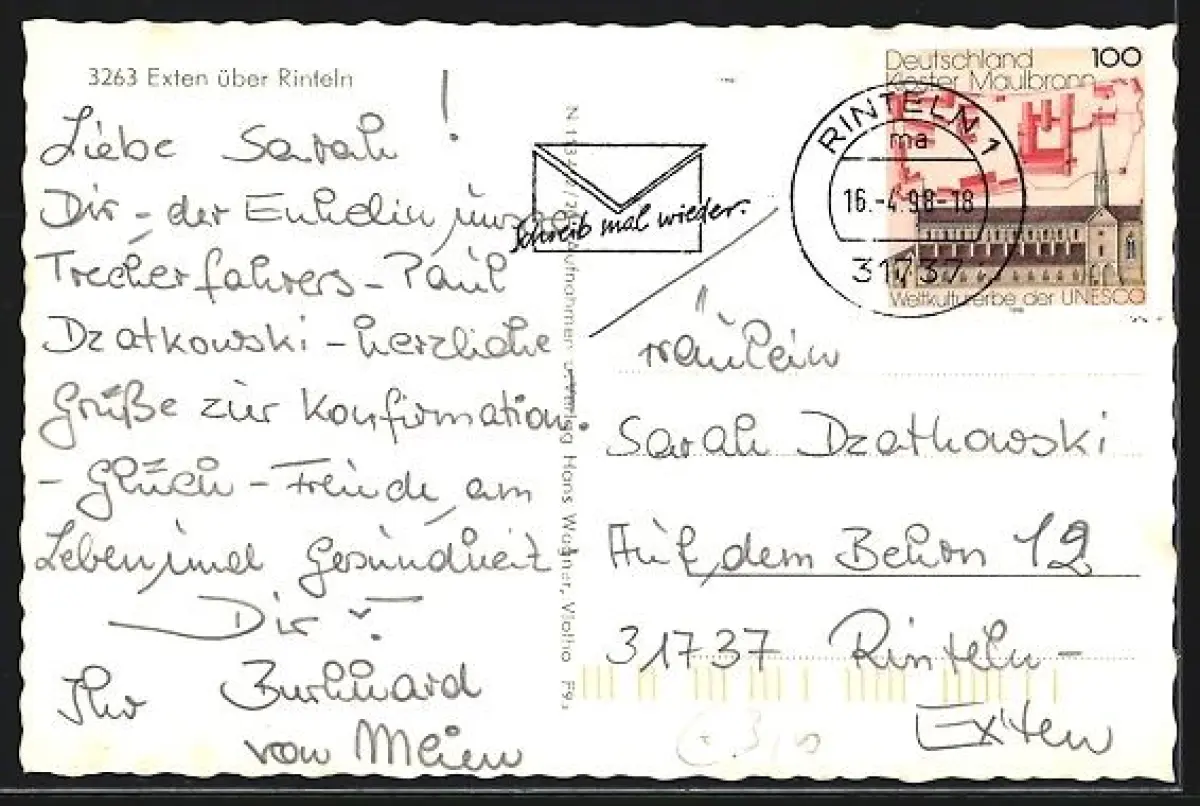 3263 Exten über Rinteln
Liebe Sarah!
Dir - der Enkelin uns
Treckerfahrers - Paul
Dzatkowski - herzliche
Grüße zur Konfirmation.
- Glück - Freude am
Leben, und Gesundheit
Dir
Ihr Burkhard
von Meien
Aufnahme Hans Wagner, Vlotho
F9
Schreib mal wieder.
Deutschland 100
Kloster Maulbronn
Weltkulturerbe der UNESCO
RINTELN 1
ma
16.-4.98-18
31737
Fräulein
Sarah Dzatkowski
Auf dem Behon 12
31737 Rinteln -
Exten